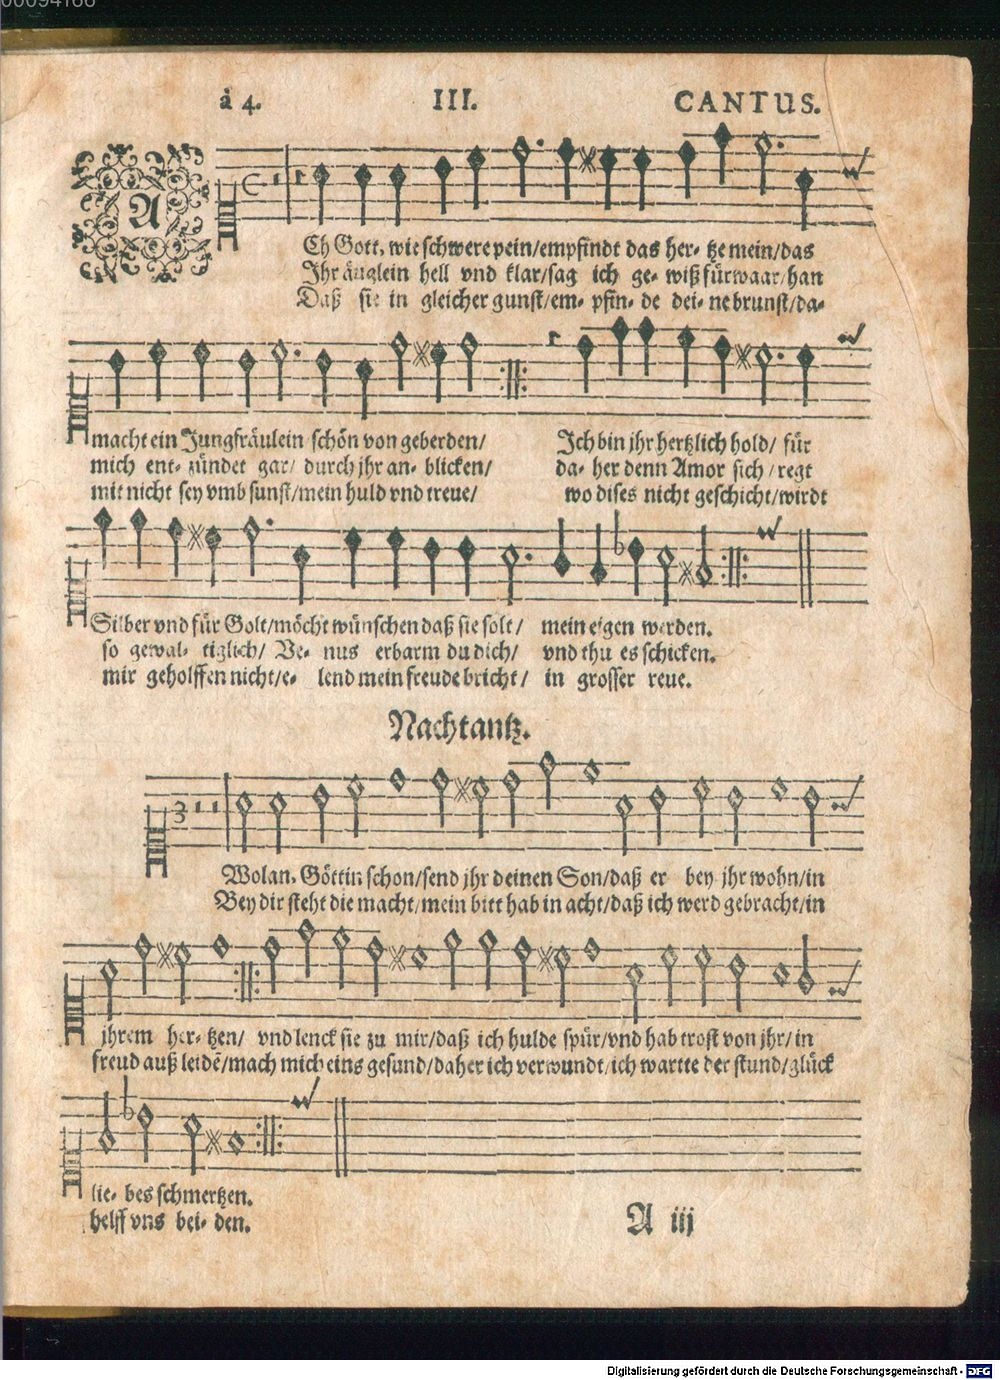 00094166
à 4. III. CANTUS.
A
Ch Gott, wie schwere pein/empfindt das her- tze mein/das
Ihr äuglein hell vnd klar/sag ich ge- wiß fürwaar/han
Daß sie in gleicher gunst/em- pfin- de dei- ne brunst/da-
macht ein Jungfräulein schön von geberden/ Ich bin jhr hertzlich hold/ für
mich ent- zündet gar/ durch jhr an- blicken/ da- her denn Amor sich/regt
mit nicht sey vmb sunst/mein huld vnd treue/ wo dises nicht geschicht/wirdt
Silber vnd für Golt/möcht wünschen daß sie solt/ mein eigen werden.
so gewal- tiglich/ Ve- nus erbarm du dich/ vnd thu es schicken.
mir geholffen nicht/e- lend mein freude bricht/ in grosser reue.
Nachtantz.
3
Wolan, Göttin schon/send jhr deinen Son/daß er bey jhr wohn/in
Bey dir steht die macht/mein bitt hab in acht/daß ich werd gebracht/in
jhrem her- tzen/ vnd lenck sie zu mir/daß ich hulde spür/vnd hab trost von jhr/in
freud auß leidē/mach mich eins gesund/daher ich verwundt/ich wartte der stund/glück
lie- bes schmertzen.
helff vns bei- den.
A iij
Digitalisierung gefördert durch die Deutsche Forschungsgemeinschaft - DFG